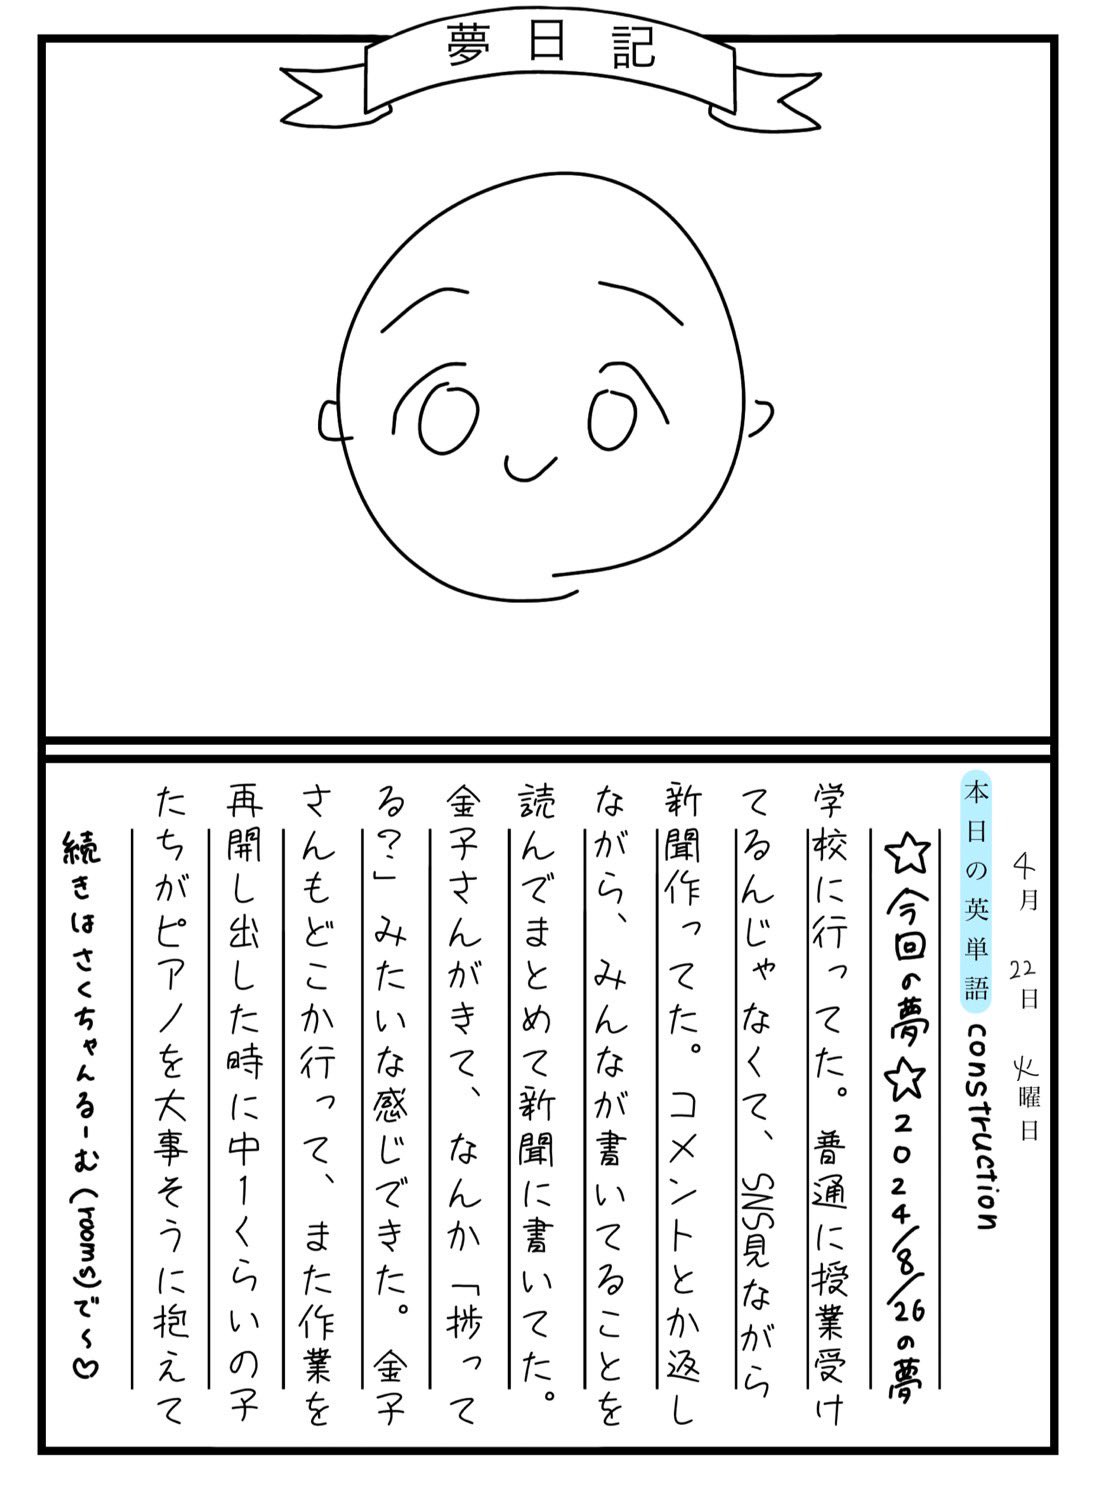 夢日記
4月 22日 火曜日
本日の英単語 construction
☆今回の夢☆2024/8/26の夢
学校に行ってた。普通に授業受け
てるんじゃなくて、SNS見ながら
新聞作ってた。コメントとか返し
ながら、みんなが書いてることを
読んでまとめて新聞に書いてた。
金子さんがきて、なんか「捗って
る?」みたいな感じできた。金子
さんもどこか行って、また作業を
再開し出した時に中1くらいの子
たちがピアノを大事そうに抱えて
続きはさくちゃんるーむ(rooms)で〜♡